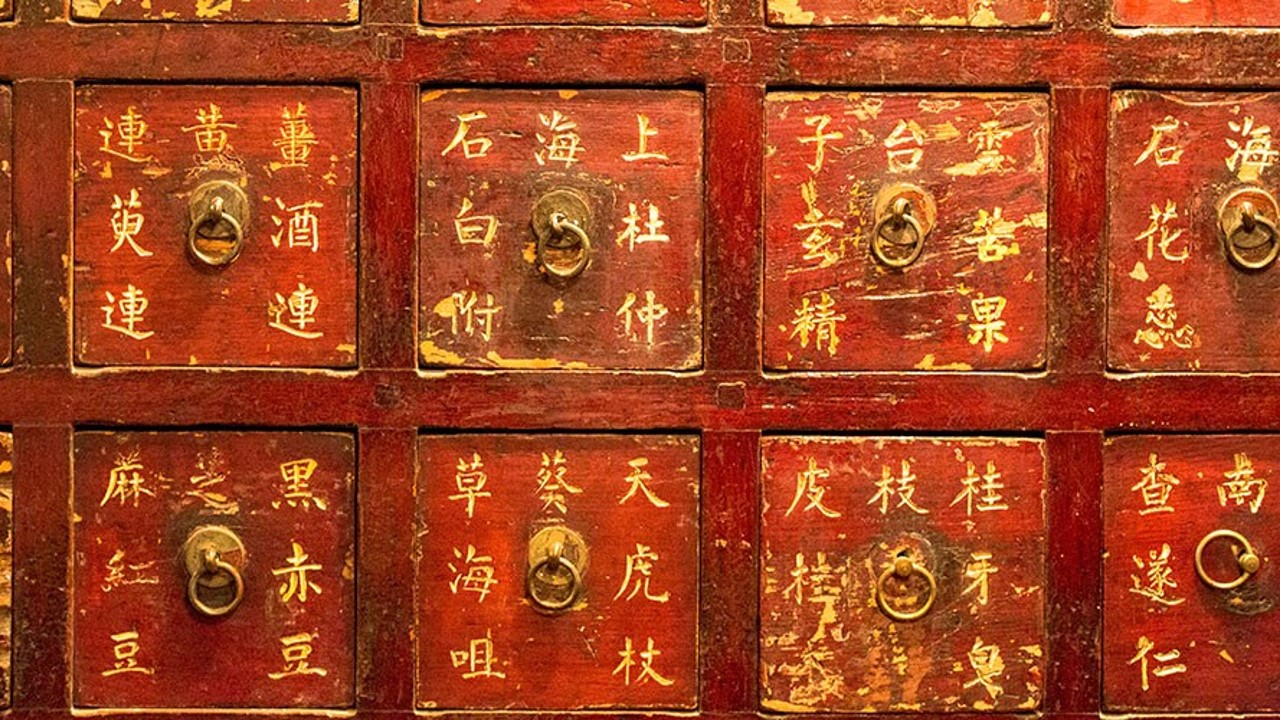 薑黃連
酒連
萸連
上海石
杜仲
白附
雲台子
苦果
玄精
海石
花蕊
黑芝麻
赤豆
紅豆
天葵草
虎杖
海咀
桂枝皮
牙皂
桂
南查
遂仁